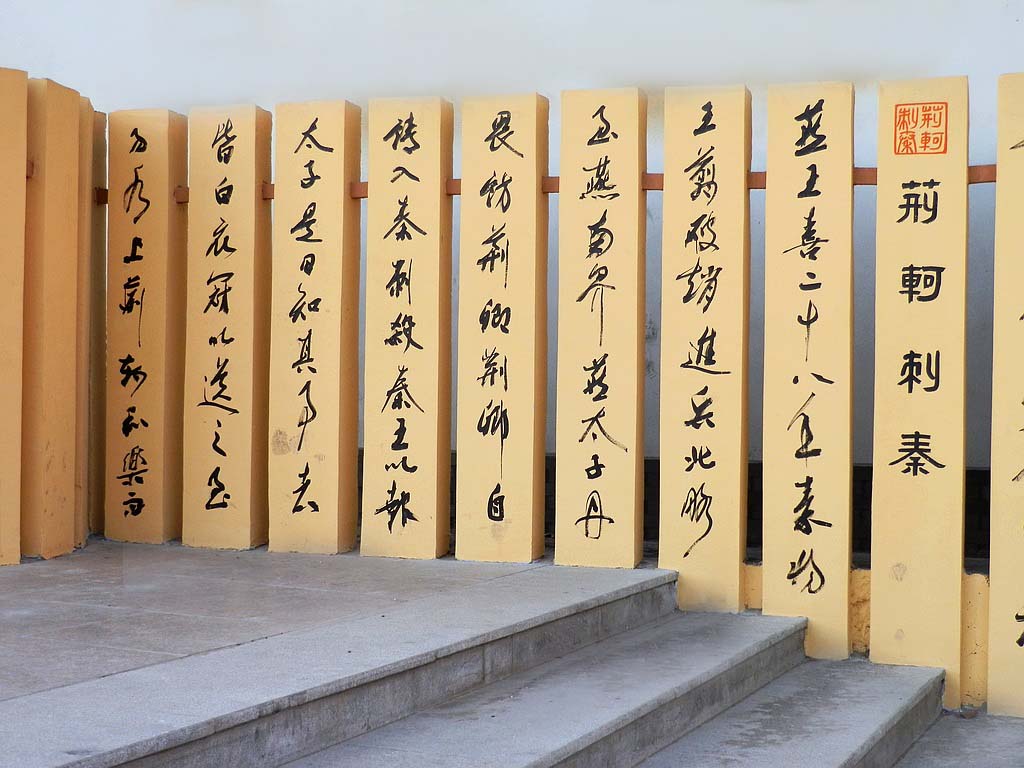 荆軻刺秦
荆軻刺秦
燕王喜二十八年秦將
王翦破趙進兵北略
至燕南界燕太子丹
畏訪荆卿荆卿自
請入秦刺殺秦王以報
太子是日知其事者
皆白衣冠以送之至
易水上荆軻和樂而